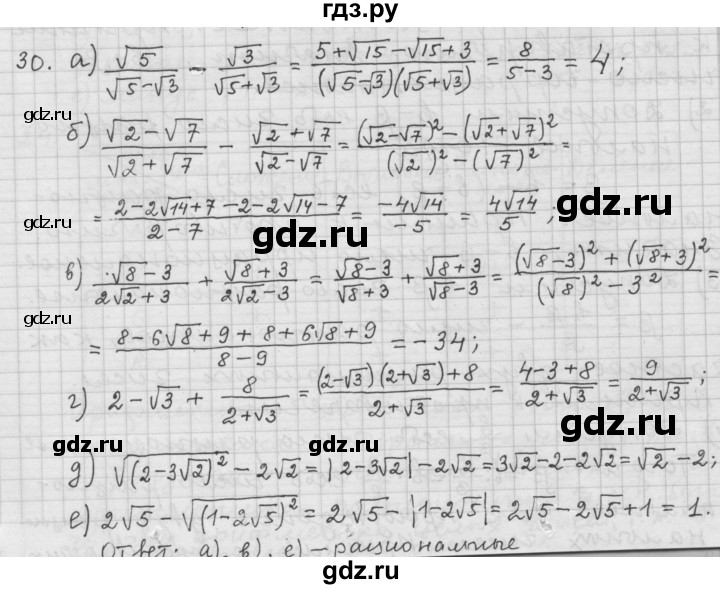 гдз.ру
30. а) √5/(√5-√3) - √3/(√5+√3) = (5+√15-√15+3)/((√5-√3)(√5+√3)) = 8/(5-3) = 4;
gdz.ru
gdz.ru
б) (√2-√7)/(√2+√7) - (√2+√7)/(√2-√7) = ((√2-√7)² - (√2+√7)²)/((√2)² - (√7)²) =
gdz.ru
= (2-2√14+7-2-2√14-7)/(2-7) = (-4√14)/(-5) = 4√14/5;
gdz.ru
gdz.ru
в) (√8-3)/(2√2+3) + (√8+3)/(2√2-3) = (√8-3)/(√8+3) + (√8+3)/(√8-3) = ((√8-3)² + (√8+3)²)/((√8)² - 3²) =
gdz.ru
= (8-6√8+9+8+6√8+9)/(8-9) = -34;
gdz.ru
г) 2-√3 + 8/(2+√3) = ((2-√3)(2+√3)+8)/(2+√3) = (4-3+8)/(2+√3) = 9/(2+√3);
gdz.ru
gdz.ru
gdz.ru
д) √((2-3√2)²) - 2√2 = |2-3√2| - 2√2 = 3√2-2-2√2 = √2-2;
е) 2√5 - √((1-2√5)²) = 2√5 - |1-2√5| = 2√5-2√5+1 = 1.
gdz.ru
Ответ: а), в), е) - рациональные
gdz.ru
gdz.ru